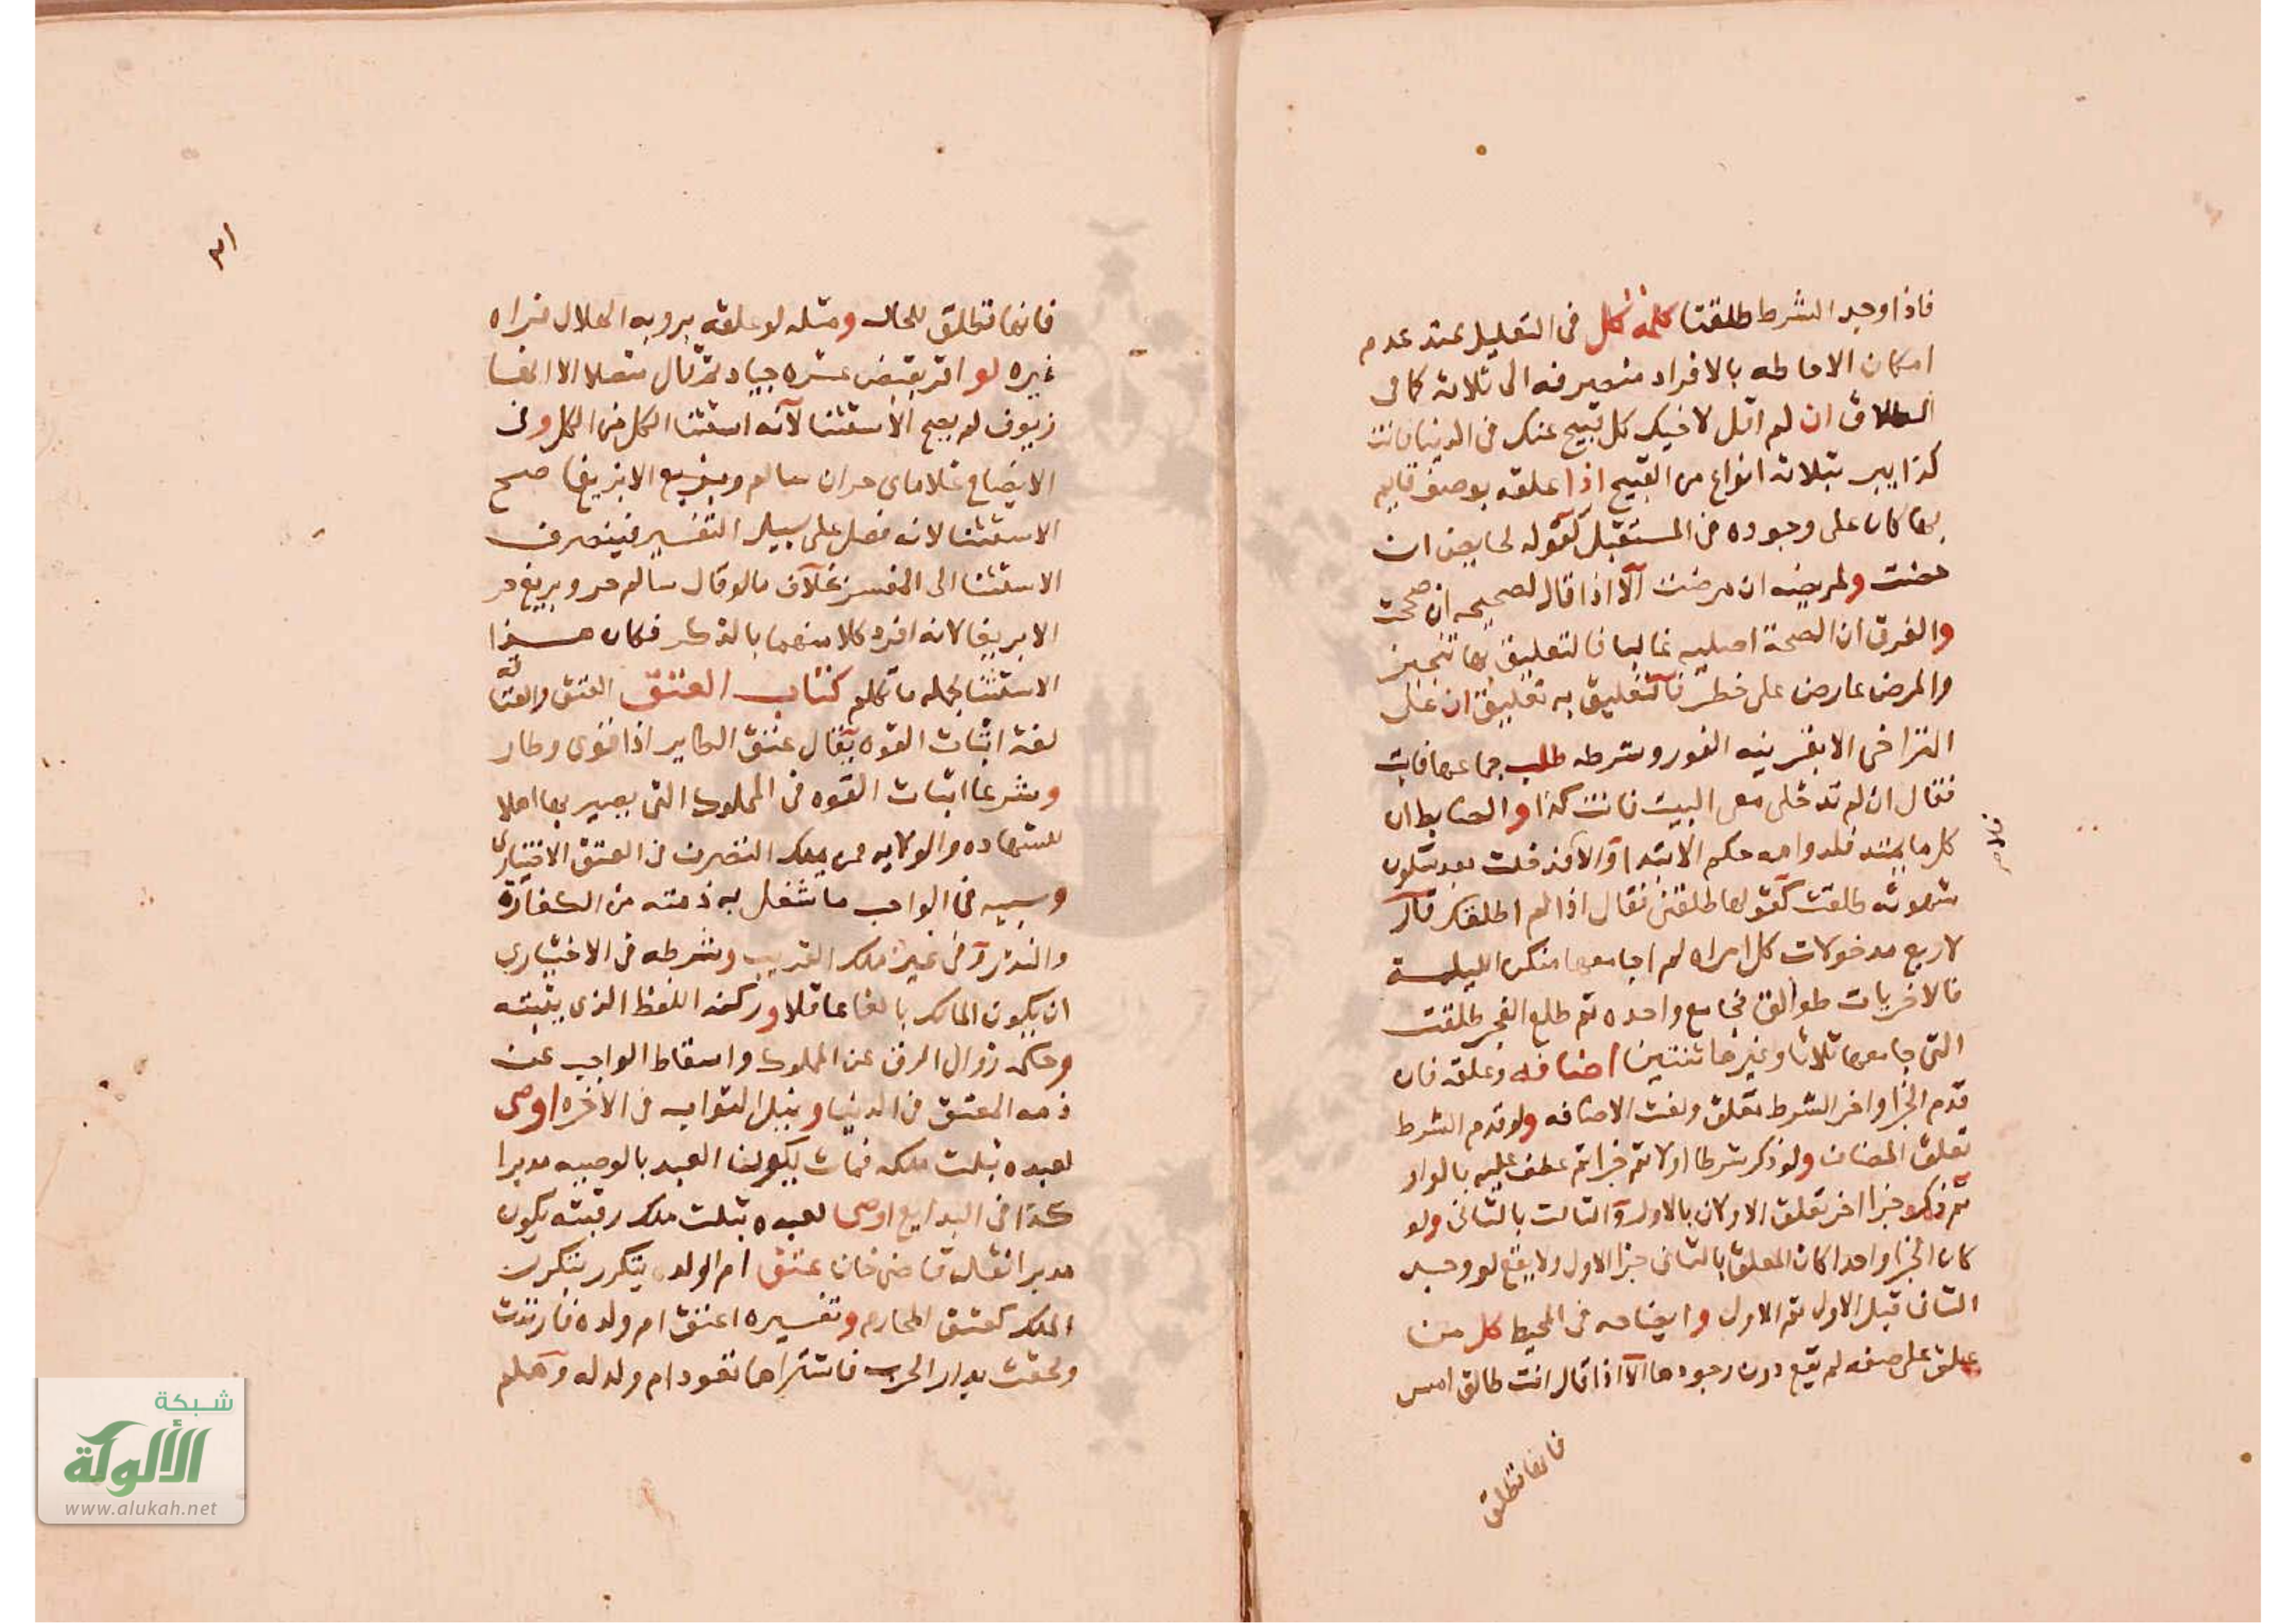 فاذا وجد الشرط طلقتا كلمة كل فى التعليل عند عدم
امكان الاحاطه بالافراد منصرفه الى ثلاثة كما فى
الطلاق ان لم اقل لاخيك كل قبيح عنك فى الدنيا فانت
كذا يبر بثلاثه انواع من القبيح اذا علقه بوصف قايم
بها كان على وجوده فى المستقبل كقوله لحايض ان
حضت ولمريضه ان مرضت الا اذا قال لصحيحه ان صححت
والفرق ان الصحة اصليه غالبا فالتعليق بها تنجيز
والمرض عارض على خطر فالتعليق به تعليق ان على
التراخى الا بقرينه الفور وشرطه طلب جماعها فابت
فقال ان لم تدخلى معى البيت فانت كذا والضابط ان
كل ما يمتد فلدوامه حكم الابتدا والا فدخلت بعد سكون
شهوته طلقت كقولها طلقنى فقال اذا لم اطلقك قال
لاربع مدخولات كل امراه لم اجامعها منكن الليلة
فالاخريات طوالق فجامع واحده ثم طلع الفجر طلقت
التى جامعها ثلاثا وغيرها ثنتين اضافه وعلقه فان
قدم الجزا واخر الشرط تعلق ولغت الاضافه ولو قدم الشرط
تعلق المضاف ولو ذكر شرطا اولا ثم جزا ثم عطف عليه بالواو
ثم ذكر جزا اخر تعلق الاولان بالاول والثالث بالثانى ولو
كان الجزا واحدا كان المعلق بالثانى جزا الاول ولا يقع لو وجد
الثانى قبل الاول ثم الاول وايضاحه فى المحيط كل من
علق على صفه لم يقع دون وجودها الا اذا قال انت طالق امس
فانها تطلق
فانها تطلق للحال ومثله لو علقه بروية الهلال فراه
غيره لو اقر بقبض عشره جياد ثم قال متصلا الا انها
زيوف لم يصح الاستثنا لانه استثنا الكل من الكل وفى
الايضاح غلاماى حران سالم وبزيع الا بزيغا صح
الاستثنا لانه فصل على سبيل التفسير فينصرف
الاستثنا الى المفسر بخلاف مالو قال سالم حر وبريغ حر
الا بريغا لانه افرد كلا منهما بالذكر فكان هــذا
الاستثنا لجملة ما تكلم كتاب العتق العتق والعتاقه
لغة اثبات القوه يقال عتق الطاير اذا قوى وطار
وشرعا اثبات القوه فى المملوك التى يصير بها اهلا
للشهاده والولايه فى العتق الاختيارى
وسببه فى الواجب ما شغل به ذمته من الكفارة
والنذر وفى غيره ملك القريب وشرطه فى الاختيارى
ان يكون المالك بالغا عاقلا وركنه اللفظ الذى يثبته
وحكمه زوال الرق عن المملوك واسقاط الواجب عن
ذمه المعتق فى الدنيا ونيل الثواب فى الاخره اوصى
لعبده بثلث ملكه فمات يكون العبد بالوصيه مدبرا
كذا فى البدايع اوصى لعبده بثلث ملك رقبته يكون
مدبرا نقله قاضى خان عتق ام الولد يتكرر بتكرر
الملك كعتق المحارم وتفسيره اعتق ام ولده فارتدت
ولحقت بدار الحرب فاشتراها تعود ام ولد له وهلم